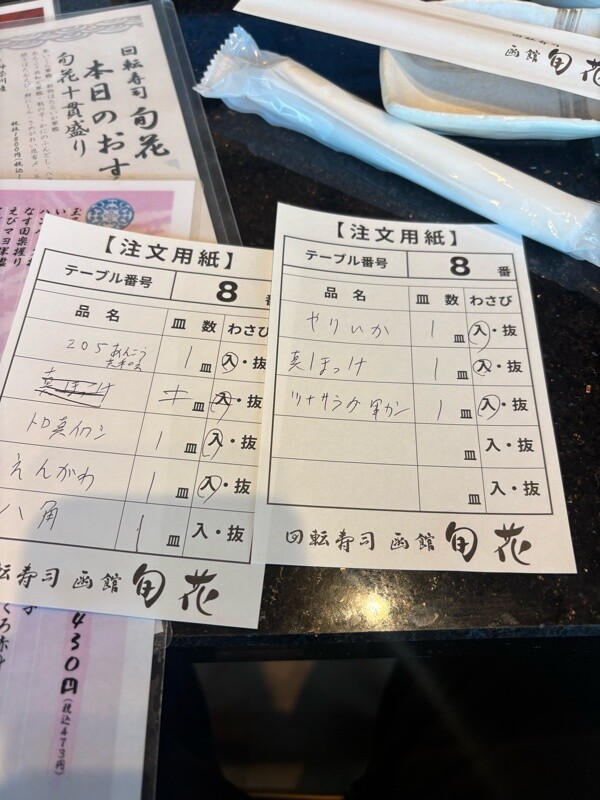 函館 旬花
回転寿司 旬花
本日のおす
旬花十貫盛り
【注文用紙】
テーブル番号 8
品名 皿数 わさび
205 あんこう 1皿 入・抜
真ほっけ 皿 入・抜
トロ真イワシ 1皿 入・抜
えんがわ 1皿 入・抜
八角 1皿 入・抜
転寿司 函館 旬花
430円
(税込473円)
【注文用紙】
テーブル番号 8 番
品名 皿数 わさび
やりいか 1皿 入・抜
真ほっけ 1皿 入・抜
ツナサラダ軍カン 1皿 入・抜
皿 入・抜
皿 入・抜
回転寿司 函館 旬花